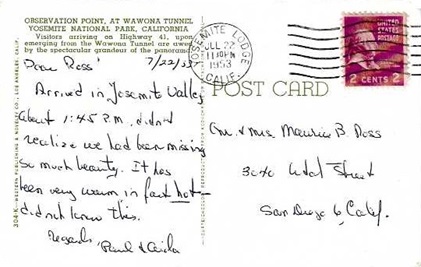 OBSERVATION POINT, AT WAWONA TUNNEL
YOSEMITE NATIONAL PARK, CALIFORNIA
Visitors arriving on Highway 41, upon
emerging from the Wawona Tunnel are awed
by the spectacular grandeur of the panorama
7/22/53
Dear Ross'
Arrived in Yosemite Valley
about 1:45 P.M. didnt
realize we had been missing
so much beauty. It has
been very warm in fact hot-
didnt know this.
Regards,
Paul &
YOSEMITE LODGE
JUL 22
PM
1953
CALIF.
UNITED STATES
POSTAGE
2 CENTS 2
POST CARD
Mr. & Mrs. Maurice B Ross
Street
San Diego 6, Calif.